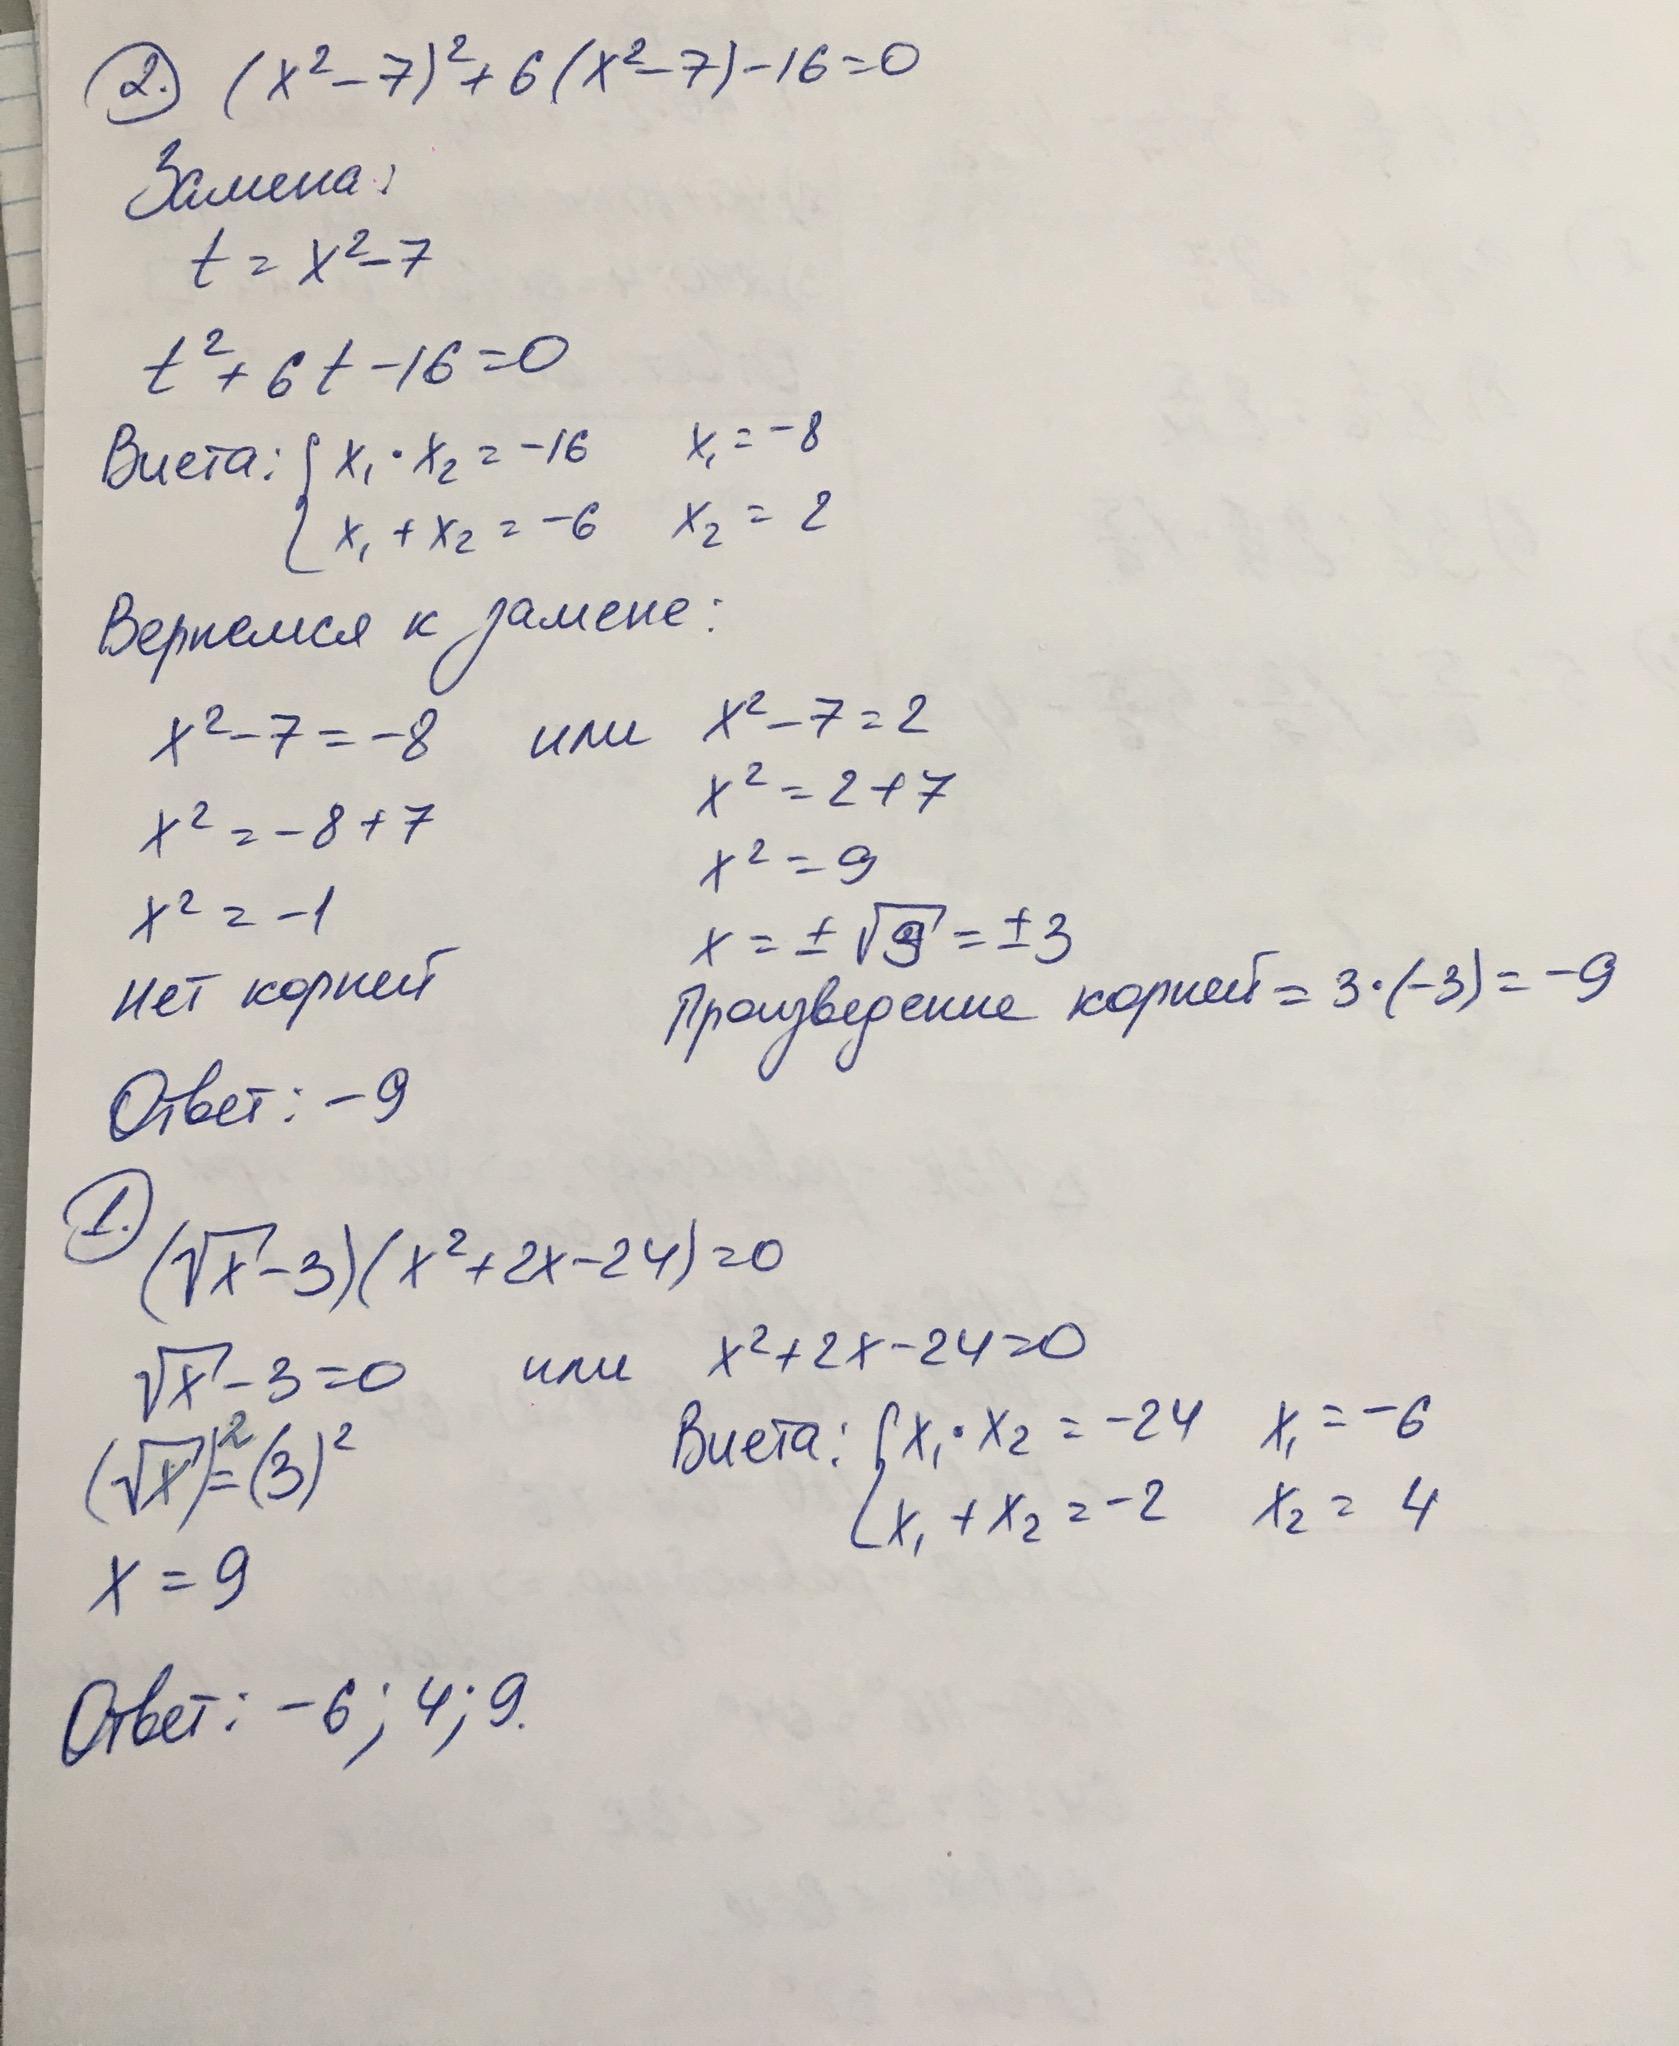 2. (x²-7)²+6(x²-7)-16=0
Замена:
t = x²-7
t²+6t-16=0
Виета: { x₁·x₂ = -16 x₁ = -8
x₁+x₂ = -6 x₂ = 2
Вернемся к замене:
x²-7 = -8 или x²-7 = 2
x² = -8+7 x² = 2+7
x² = -1 x² = 9
нет корней x = ±√9 = ±3
Произведение корней = 3·(-3) = -9
Ответ: -9
1. (√x-3)(x²+2x-24)=0
√x-3=0 или x²+2x-24=0
(√x)²=(3)² Виета: { x₁·x₂ = -24 x₁ = -6
x₁+x₂ = -2 x₂ = 4
x = 9
Ответ: -6; 4; 9.